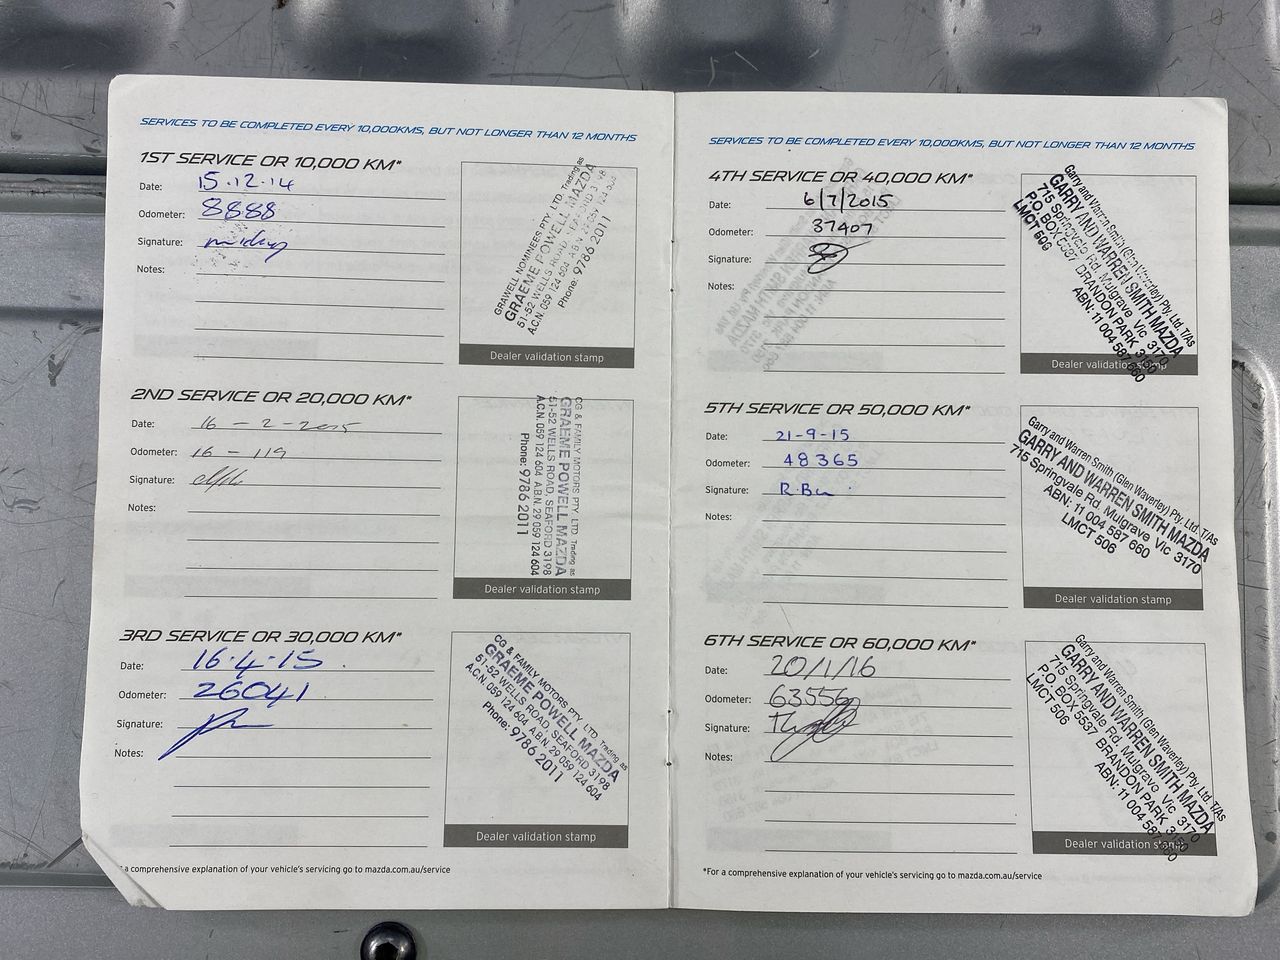 SERVICES TO BE COMPLETED EVERY 10,000KMS, BUT NOT LONGER THAN 12 MONTHS
1ST SERVICE OR 10,000 KM*
Date: 15.12.14
Odometer: 8888
Signature:
Notes:
GRAWELL NOMINEES PTY. LTD. Trading as
GRAEME POWELL MAZDA
51-52 WELLS ROAD, SEAFORD 3198
A.C.N. 059 124 604 A.B.N. 29 059 124 604
Phone: 9786 2011
Dealer validation stamp
2ND SERVICE OR 20,000 KM*
Date: 16 - 2 - 2015
Odometer: 16 - 119
Signature:
Notes:
CG & FAMILY MOTORS PTY. LTD. Trading as
GRAEME POWELL MAZDA
51-52 WELLS ROAD, SEAFORD 3198
A.C.N. 059 124 604 A.B.N. 29 059 124 604
Phone: 9786 2011
Dealer validation stamp
3RD SERVICE OR 30,000 KM*
Date: 16.4.15
Odometer: 26041
Signature:
Notes:
CG & FAMILY MOTORS PTY. LTD. Trading as
GRAEME POWELL MAZDA
51-52 WELLS ROAD, SEAFORD 3198
A.C.N. 059 124 604 A.B.N. 29 059 124 604
Phone: 9786 2011
Dealer validation stamp
a comprehensive explanation of your vehicle's servicing go to mazda.com.au/service
SERVICES TO BE COMPLETED EVERY 10,000KMS, BUT NOT LONGER THAN 12 MONTHS
4TH SERVICE OR 40,000 KM*
Date: 6/7/2015
Odometer: 37407
Signature:
Notes:
Garry and Warren Smith (Glen Waverley) Pty. Ltd. T/As
GARRY AND WARREN SMITH MAZDA
715 Springvale Rd. Mulgrave Vic 3170
P.O. BOX 5537 BRANDON PARK 3150
LMCT 506 ABN: 11 004 587 660
Dealer validation stamp
5TH SERVICE OR 50,000 KM*
Date: 21-9-15
Odometer: 48365
Signature:
Notes:
Garry and Warren Smith (Glen Waverley) Pty. Ltd. T/As
GARRY AND WARREN SMITH MAZDA
715 Springvale Rd. Mulgrave Vic 3170
ABN: 11 004 587 660
LMCT 506
Dealer validation stamp
6TH SERVICE OR 60,000 KM*
Date: 20/1/16
Odometer: 63556
Signature:
Notes:
Garry and Warren Smith (Glen Waverley) Pty. Ltd. T/As
GARRY AND WARREN SMITH MAZDA
715 Springvale Rd. Mulgrave Vic 3170
P.O. BOX 5537 BRANDON PARK 3150
LMCT 506 ABN: 11 004 587 660
Dealer validation stamp
*For a comprehensive explanation of your vehicle's servicing go to mazda.com.au/service